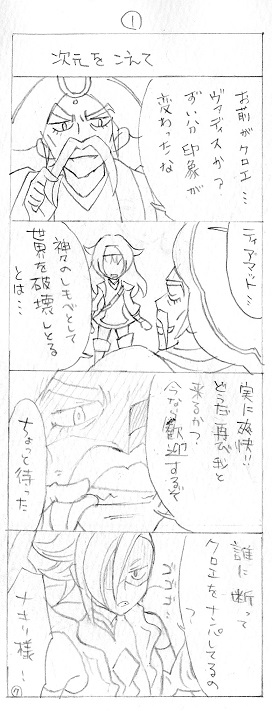 ①
次元をこえて
お前がクロエ…
ヴァディスか?
ずい分印象が
変わったな
ティアマット…
神々のしもべとして
世界を破壊しとる
とは…
実に爽快!!
どうだ再び我と
来るか?
今なら歓迎するぞ
ちょっと待った
誰に断って
クロエをナンパしてるの
?
ゴゴゴ…
ナキリ様!